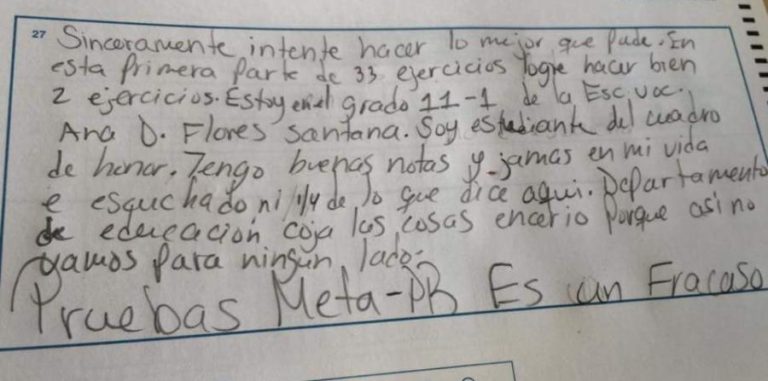 27 Sinceramente intente hacer lo mejor que pude. En
esta primera parte de 33 ejercicios logre hacer bien
2 ejercicios. Estoy en el grado 11-1 de la Esc. voc.
Ana D. Flores Santana. Soy estudiante del cuadro
de honor. Tengo buenas notas y jamas en mi vida
e esquchado ni 1/4 de lo que dice aqui. Departamento
de educación coja las cosas encerio porque asi no
vamos para ningún lado.
Pruebas Meta-PR Es un Fracaso